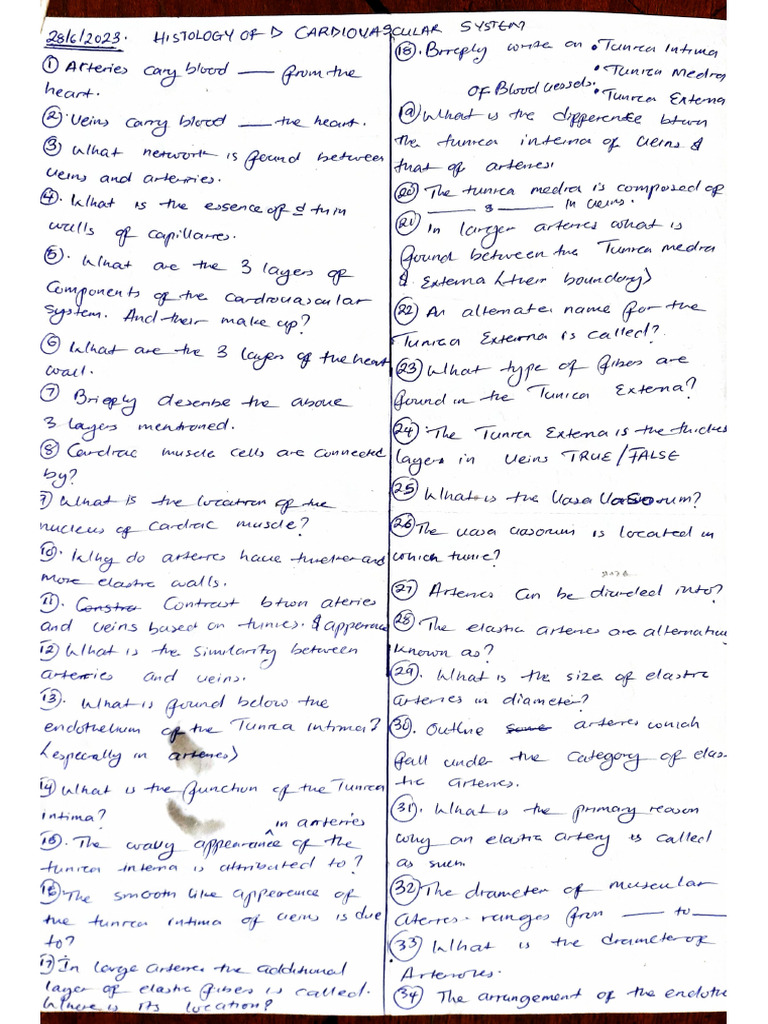 28/6/2023. HISTOLOGY OF D CARDIOVASCULAR SYSTEM
① Arteries cary blood ___ from the
heart.
②. Veins carry blood ___ the heart.
③ What network is found between
veins and arteries.
④. What is the essence of d thin
walls of capillaries.
⑤. What are the 3 layers of
components of the cardiovascular
system. And their make up?
⑥ What are the 3 layers of the heart
wall.
⑦ Briefly describe the above
3 layers mentioned.
⑧ Cardiac muscle cells are connected
by?
9) What is the location of the
nucleus of cardiac muscle?
10. Why do arteries have thicker and
more elastic walls.
11. Constra Contrast btwn ateries
and veins based on tunics. & apperence
12) What is the similarity between
arteries and veins.
13. What is found below the
endothelium of the Tunica Intima?
(especially in arteries)
14) What is the function of the Tunica
intima?
15. The wavy appearance in arteries of the
tunica interna is attributed to?
16 The smooth like apperence of
the tunica intima of veins is due
to?
17) In large arteries the additional
layer of elastic fibes is called.
Where is its location?
18. Briefly write on • Tunica Intima
• Tunica Media
of Blood vessels.
• Tunica Externa
19) What is the difference btwn
the tunica interna of veins &
that of arteries.
20) The tunica media is composed of
___ & ___ in veins.
21) In larger arteries what is
found between the Tunica media
& Externa (their boundary)
22) An alternate name for the
Tunica Externa is called?
23) What type of fibes are
found in the Tunica Externa?
24. The Tunica Externa is the thickes
layers in veins TRUE/FALSE
25 What is the Vasa Vasorum?
26 The vasa vasorum is located in
which tunic?
27) Arteries can be divided into?
28. The elastic arteries are alternative
known as?
29. What is the size of elastic
arteries in diameter?
30. Outline some arteries which
fall under the category of elas-
tic arteries.
31. What is the primary reason
why an elastic artery is called
as such
32) The diameter of muscular
ateries ranges from ___ to ___
33) What is the diameter of
Arterioles.
34) The arrangement of the endothe